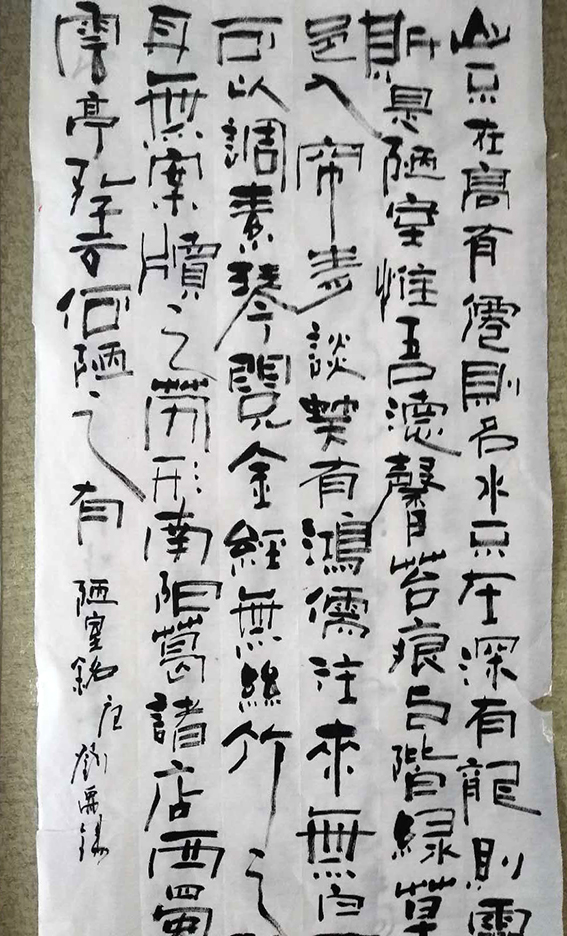 山不在高有僊則名水不在深有龍則靈
斯是陋室惟吾德馨苔痕上階緑草
色入帘青談笑有鴻儒往來無白
可以調素琴閲金經無絲竹之
耳無案牘之勞形南陽葛諸店西蜀
雲亭孔子云何陋之有
陋室銘 唐 劉禹錫